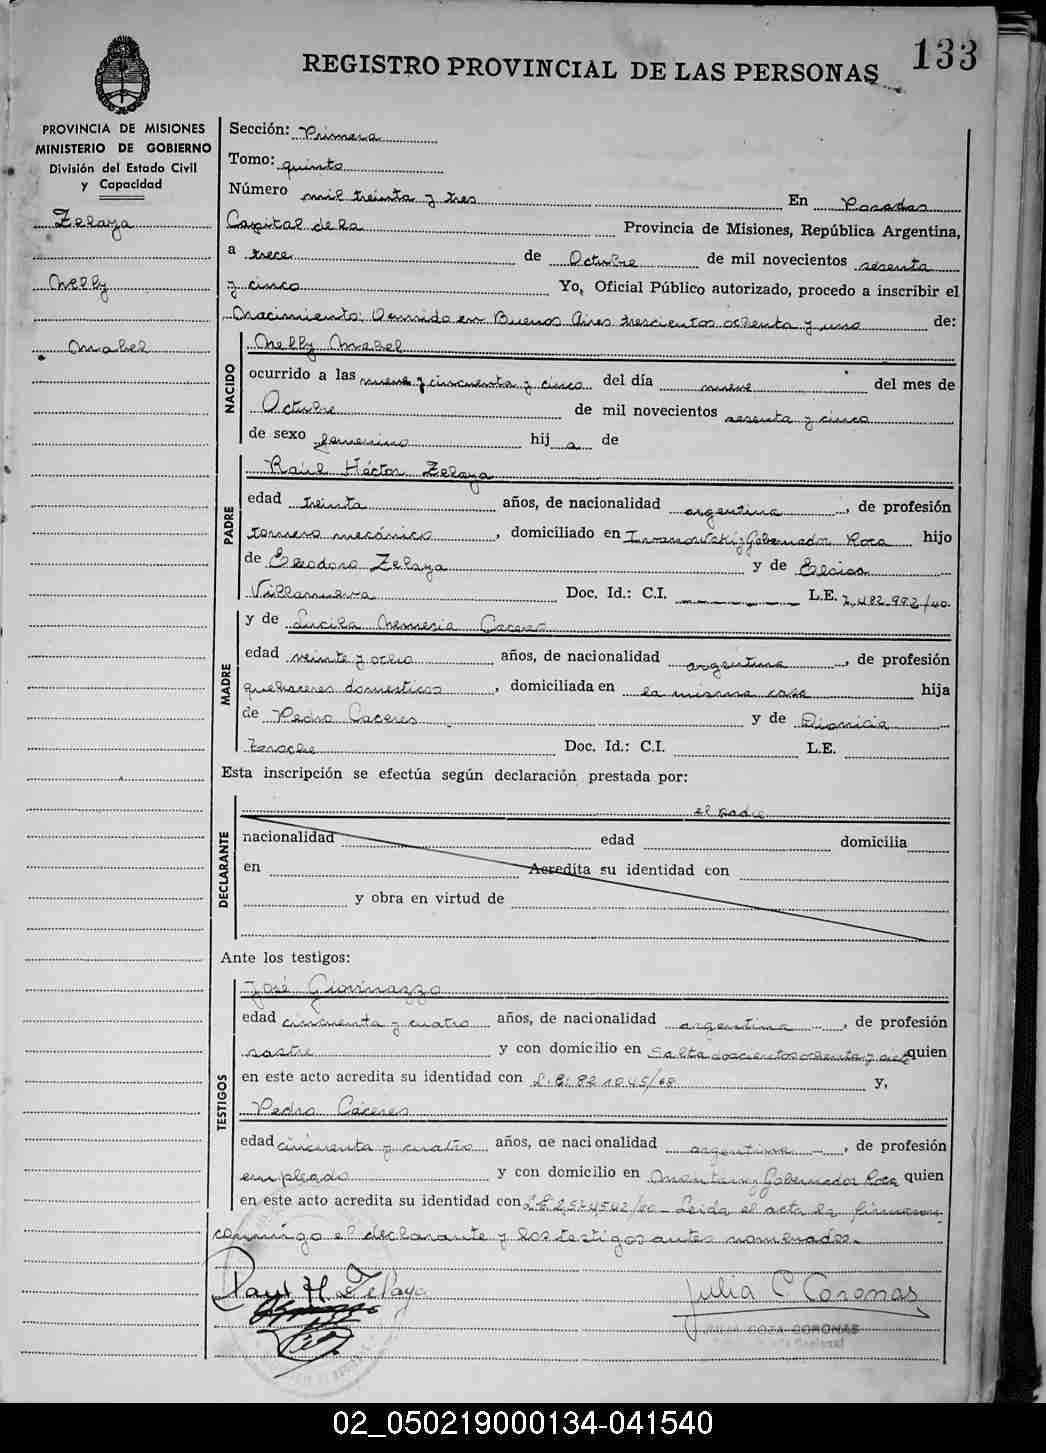 133
REGISTRO PROVINCIAL DE LAS PERSONAS
PROVINCIA DE MISIONES
MINISTERIO DE GOBIERNO
División del Estado Civil
y Capacidad
Zelaya
Nelly
Mabel
Sección: Primera
Tomo: quinto
Número mil treinta y tres En Posadas
Capital de la Provincia de Misiones, República Argentina,
a trece de Octubre de mil novecientos sesenta
y cinco Yo, Oficial Público autorizado, procedo a inscribir el
Nacimiento: Ocurrido en Buenos Aires trescientos ochenta y uno de:
NACIDO
Nelly Mabel
ocurrido a las nueve y cincuenta y cinco del día nueve del mes de
Octubre de mil novecientos sesenta y cinco
de sexo femenino hij a de
PADRE
Raúl Héctor Zelaya
edad treinta años, de nacionalidad argentina, de profesión
tornero mecánico, domiciliado en Iwanowski y Gobernador Roca hijo
de Eleodoro Zelaya y de
Villanueva Doc. Id.: C.I. L.E. 7.482.992/40.
MADRE
y de Lucila Nemesia Caceres
edad veinte y ocho años, de nacionalidad argentina, de profesión
quehaceres domesticos, domiciliada en la misma casa hija
de Pedro Caceres y de Dionicia
Doc. Id.: C.I. L.E.
Esta inscripción se efectúa según declaración prestada por:
DECLARANTE
el padre
nacionalidad edad domicilia
en Acredita su identidad con
y obra en virtud de
Ante los testigos:
TESTIGOS
José Giovinazzo
edad cincuenta y cuatro años, de nacionalidad argentina, de profesión
sastre y con domicilio en Salta doscientos ochenta y siete quien
en este acto acredita su identidad con y,
Pedro Cáceres
edad cincuenta y cuatro años, de nacionalidad argentina, de profesión
empleado y con domicilio en y Gobernador Roca quien
en este acto acredita su identidad con L.E. Leida el acta la firman
conmigo el declarante y los testigos antes nombrados.
Raul H. Zelaya
Julia C Coronas
CORONAS
02_050219000134-041540